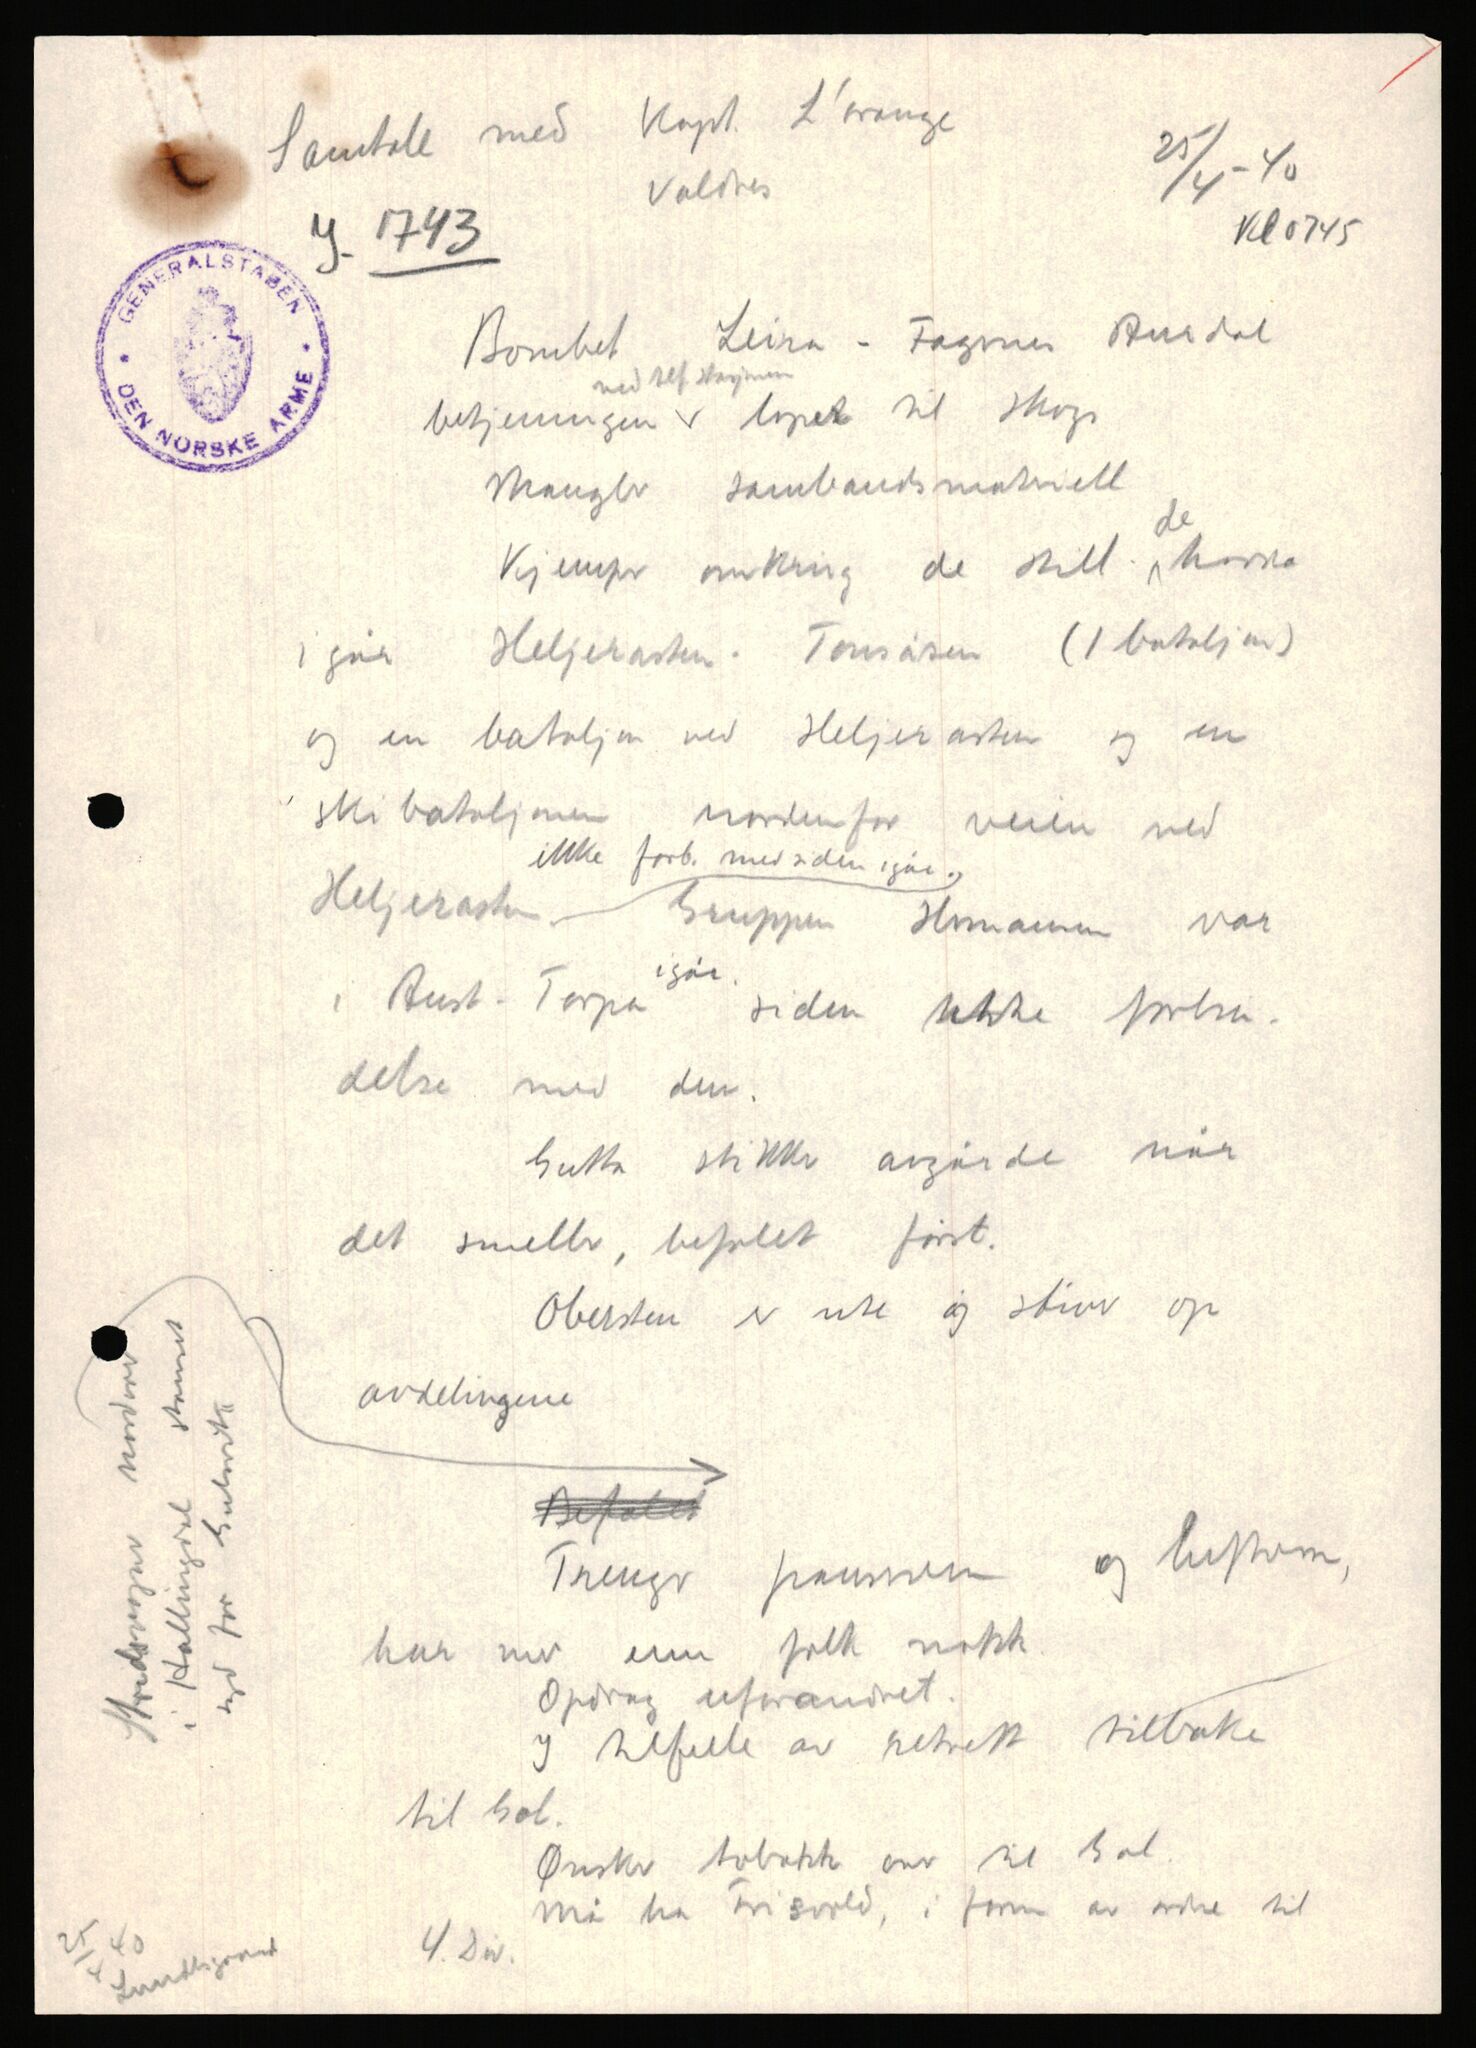 Samtale med Kapt. L'orange
Valdres
25/4-40
Kl 0745
y. 1743
GENERALSTABEN
DEN NORSKE ARME
Bombet Leira - Fagernes Aurdal
ved tlf stasjonen
betjeningen v løpet til skogs
Mangler sambandsmateriell
Kjemper omkring de still. de hadde
igår Heljerasten - Tonsåsen (1 bataljon)
og en bataljon ved Heljerasten og en
skibataljonen nordenfor veien ved
ikke forb. med siden igår.
Heljerasten Gruppen Homannen var
i Aust-Torpa igår. siden ikke forbin-
delse med den.
Gutta stikker avgårde når
det smeller, befalet først.
Obersten er ute og stiver op
avdelingene
Befalet
Trenger panservern og luftvern,
har mer enn folk nokk.
Opdrag uforandret.
I tilfelle av retrett tilbake
til Gol.
Ønsker tobakk over til Gol.
Må ha Frisvold, i form av ordre til
4. Div.
Stridsvogner nordover
i Hallingdal stanset
syd for Gulsvik
25/4 40